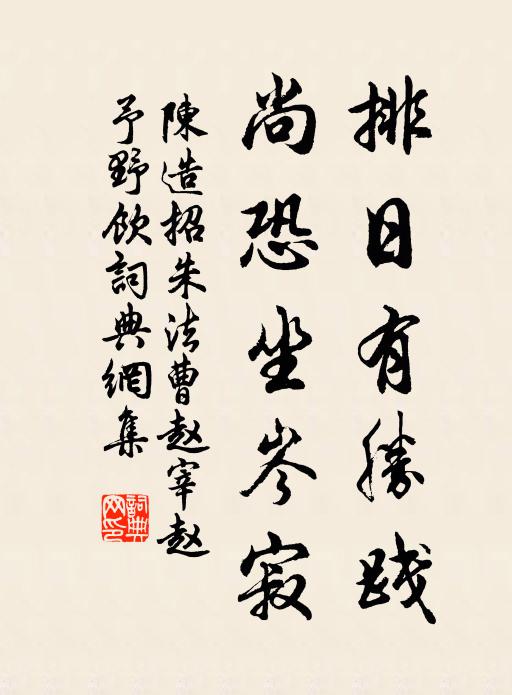 排日有勝践
尚恐坐岑寂
陳造招朱法曹赵宰赵
予野飲詞典網集
詞典
网印